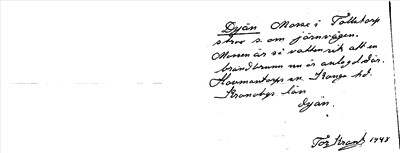 Dyån Mosse i Tollatorp
strax s. om järnvägen.
Mossen är så vattenrik att en
brandbrunn nu är anlagd där.
Hovmantorps sn. Konga hd.
Kronobgs län.
dyån.
Tor Kranh 1948